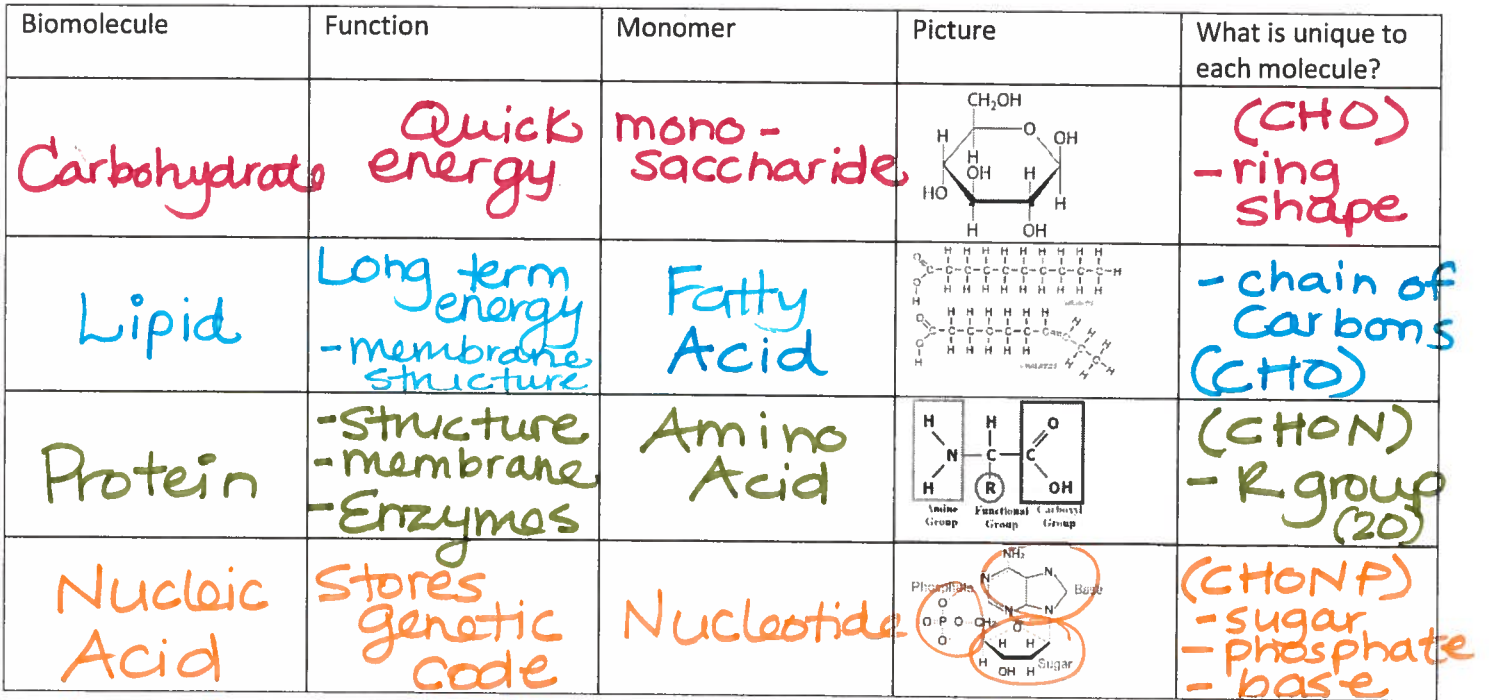 Biomolecule
Function
Monomer
Picture
What is unique to
each molecule?
Carbohydrate
Quick
energy
mono-
saccharide
CH₂OH
O
H
OH
H
OH
H
HO
H
H
OH
(CHO)
- ring
shape
Lipid
Long term
energy
- membrane
structure
Fatty
Acid
- chain of
Carbons
(CHO)
Protein
- structure
- membrane
- Enzymes
Amino
Acid
H H O
N C C
H R OH
Amine Functional Carboxyl
Group Group Group
(CHON)
- R group
(20)
Nucleic
Acid
Stores
genetic
code
Nucleotide
NH₂
N N
Phosphate Base
N N
O
O P O CH₂ O
O
H H
H
Sugar
OH H
(CHONP)
- sugar
- phosphate
- base